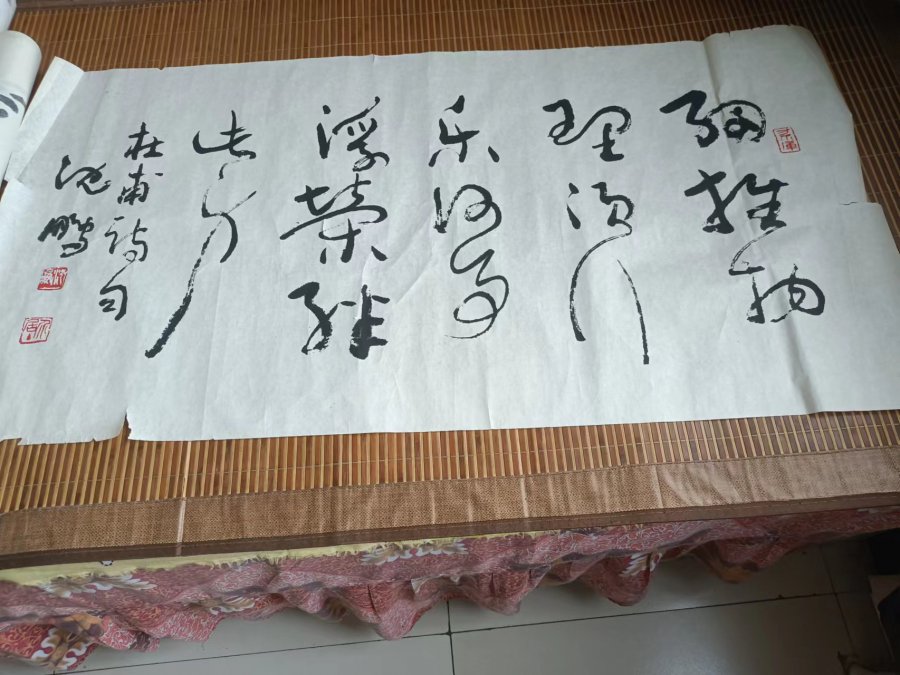 细推物
理须行
乐何用
浮榮绊
此身
杜甫诗句
沈鹏